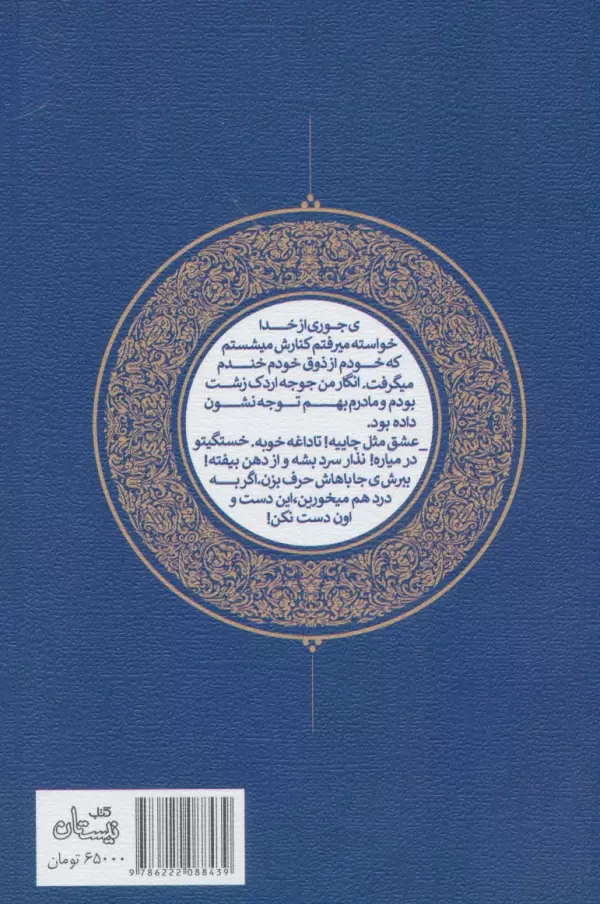 ی جوری از خدا
خواسته میرفتم کنارش میشستم
که خودم از ذوق خودم خندم
میگرفت. انگار من جوجه اردک زشت
بودم و مادرم بهم توجه نشون
داده بود.
_عشق مثل چاییه! تا داغه خوبه. خستگیتو
در میاره! نذار سرد بشه و از دهن بیفته!
ببرش ی جا باهاش حرف بزن. اگر به
درد هم میخورین، این دست و
اون دست نکن!
کتاب
نیستان
۶۵۰۰۰ تومان
9 786222 088439